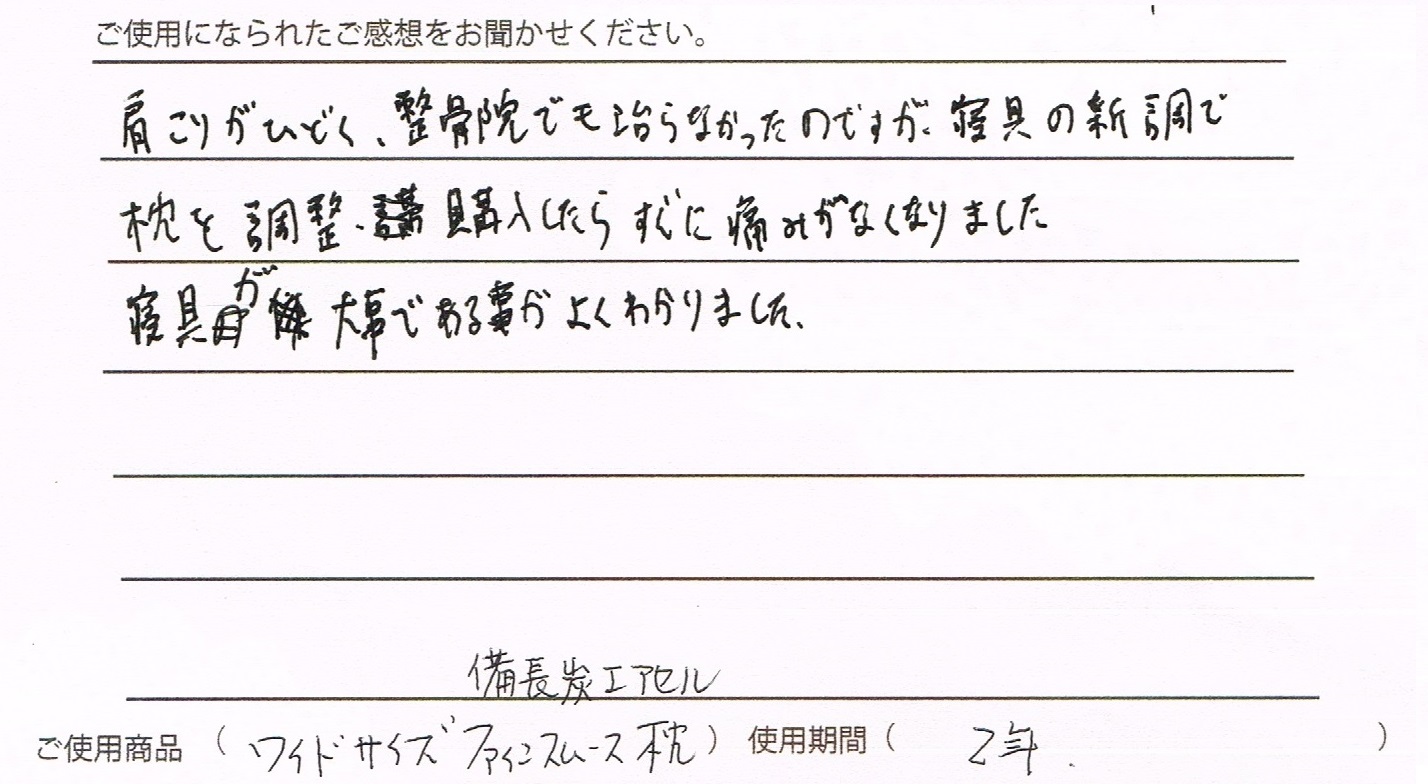 ご使用になられたご感想をお聞かせください。
肩こりがひどく、整骨院でも治らなかったのですが、寝具の新調で
枕を調整・購入したらすぐに痛みがなくなりました
寝具が大事である事がよくわかりました、
備長炭エアセル
ご使用商品(ワイドサイズファインスムース枕)使用期間(2年.)